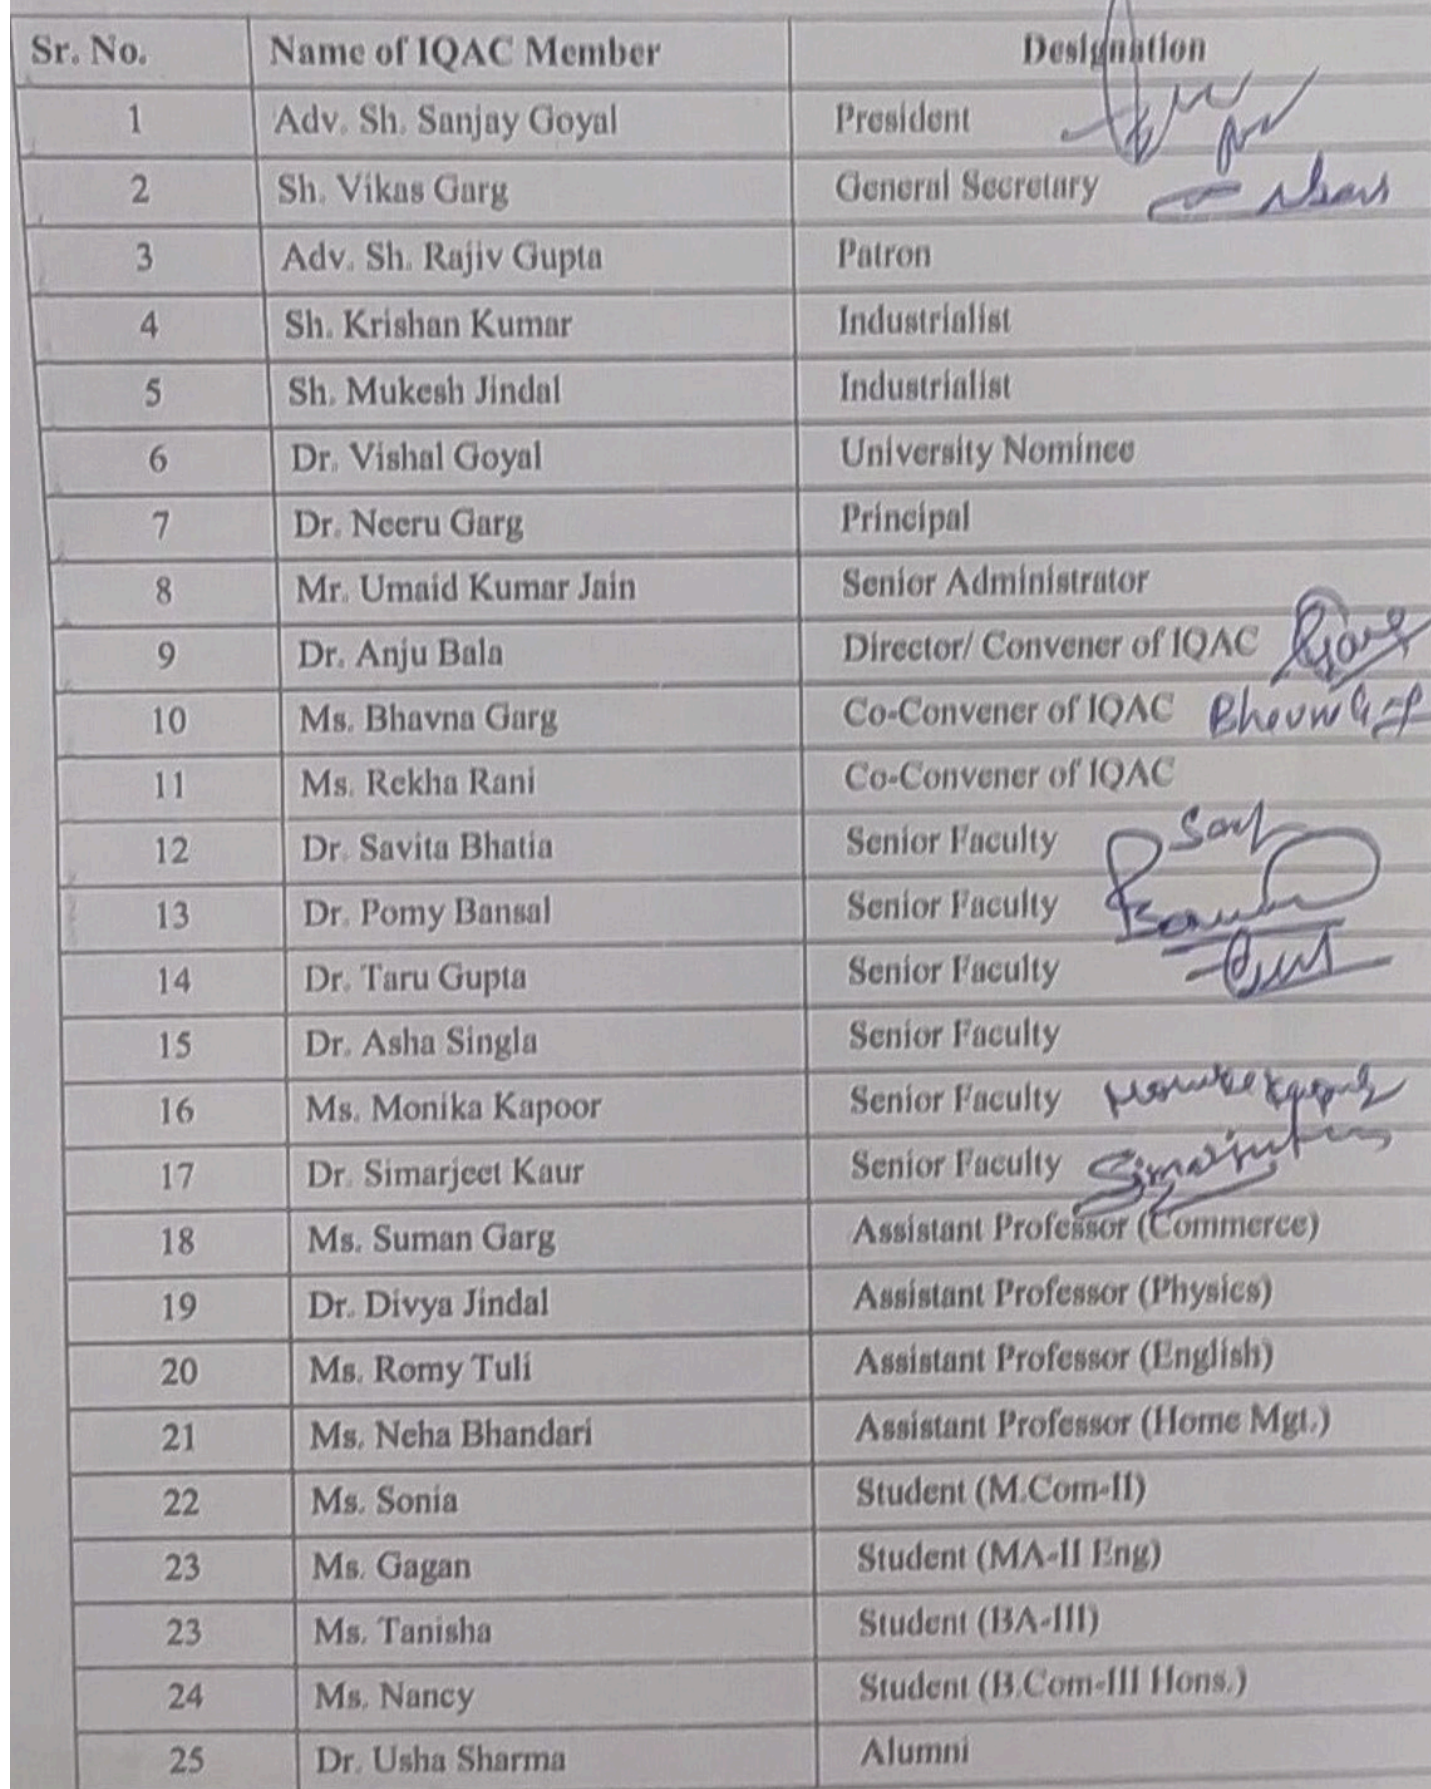 Sr. No. Name of IQAC Member Designation
1 Adv. Sh. Sanjay Goyal President
2 Sh. Vikas Garg General Secretary
3 Adv. Sh. Rajiv Gupta Patron
4 Sh. Krishan Kumar Industrialist
5 Sh. Mukesh Jindal Industrialist
6 Dr. Vishal Goyal University Nominee
7 Dr. Neeru Garg Principal
8 Mr. Umaid Kumar Jain Senior Administrator
9 Dr. Anju Bala Director/ Convener of IQAC
10 Ms. Bhavna Garg Co-Convener of IQAC
11 Ms. Rekha Rani Co-Convener of IQAC
12 Dr. Savita Bhatia Senior Faculty
13 Dr. Pomy Bansal Senior Faculty
14 Dr. Taru Gupta Senior Faculty
15 Dr. Asha Singla Senior Faculty
16 Ms. Monika Kapoor Senior Faculty
17 Dr. Simarjeet Kaur Senior Faculty
18 Ms. Suman Garg Assistant Professor (Commerce)
19 Dr. Divya Jindal Assistant Professor (Physics)
20 Ms. Romy Tuli Assistant Professor (English)
21 Ms. Neha Bhandari Assistant Professor (Home Mgt.)
22 Ms. Sonia Student (M.Com-II)
23 Ms. Gagan Student (MA-II Eng)
23 Ms. Tanisha Student (BA-III)
24 Ms. Nancy Student (B.Com-III Hons.)
25 Dr. Usha Sharma Alumni